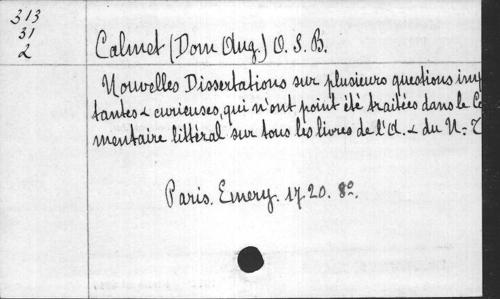 313
31
2
Calmet (Dom Aug.) O. S. B.
Nouvelles Dissertations sur plusieurs questions imp
tantes & curieuses, qui n'ont point été traitées dans le Co
mentaire littéral sur tous les livres de l'A. & du N. T
Paris. Emery. 1720. 8º.